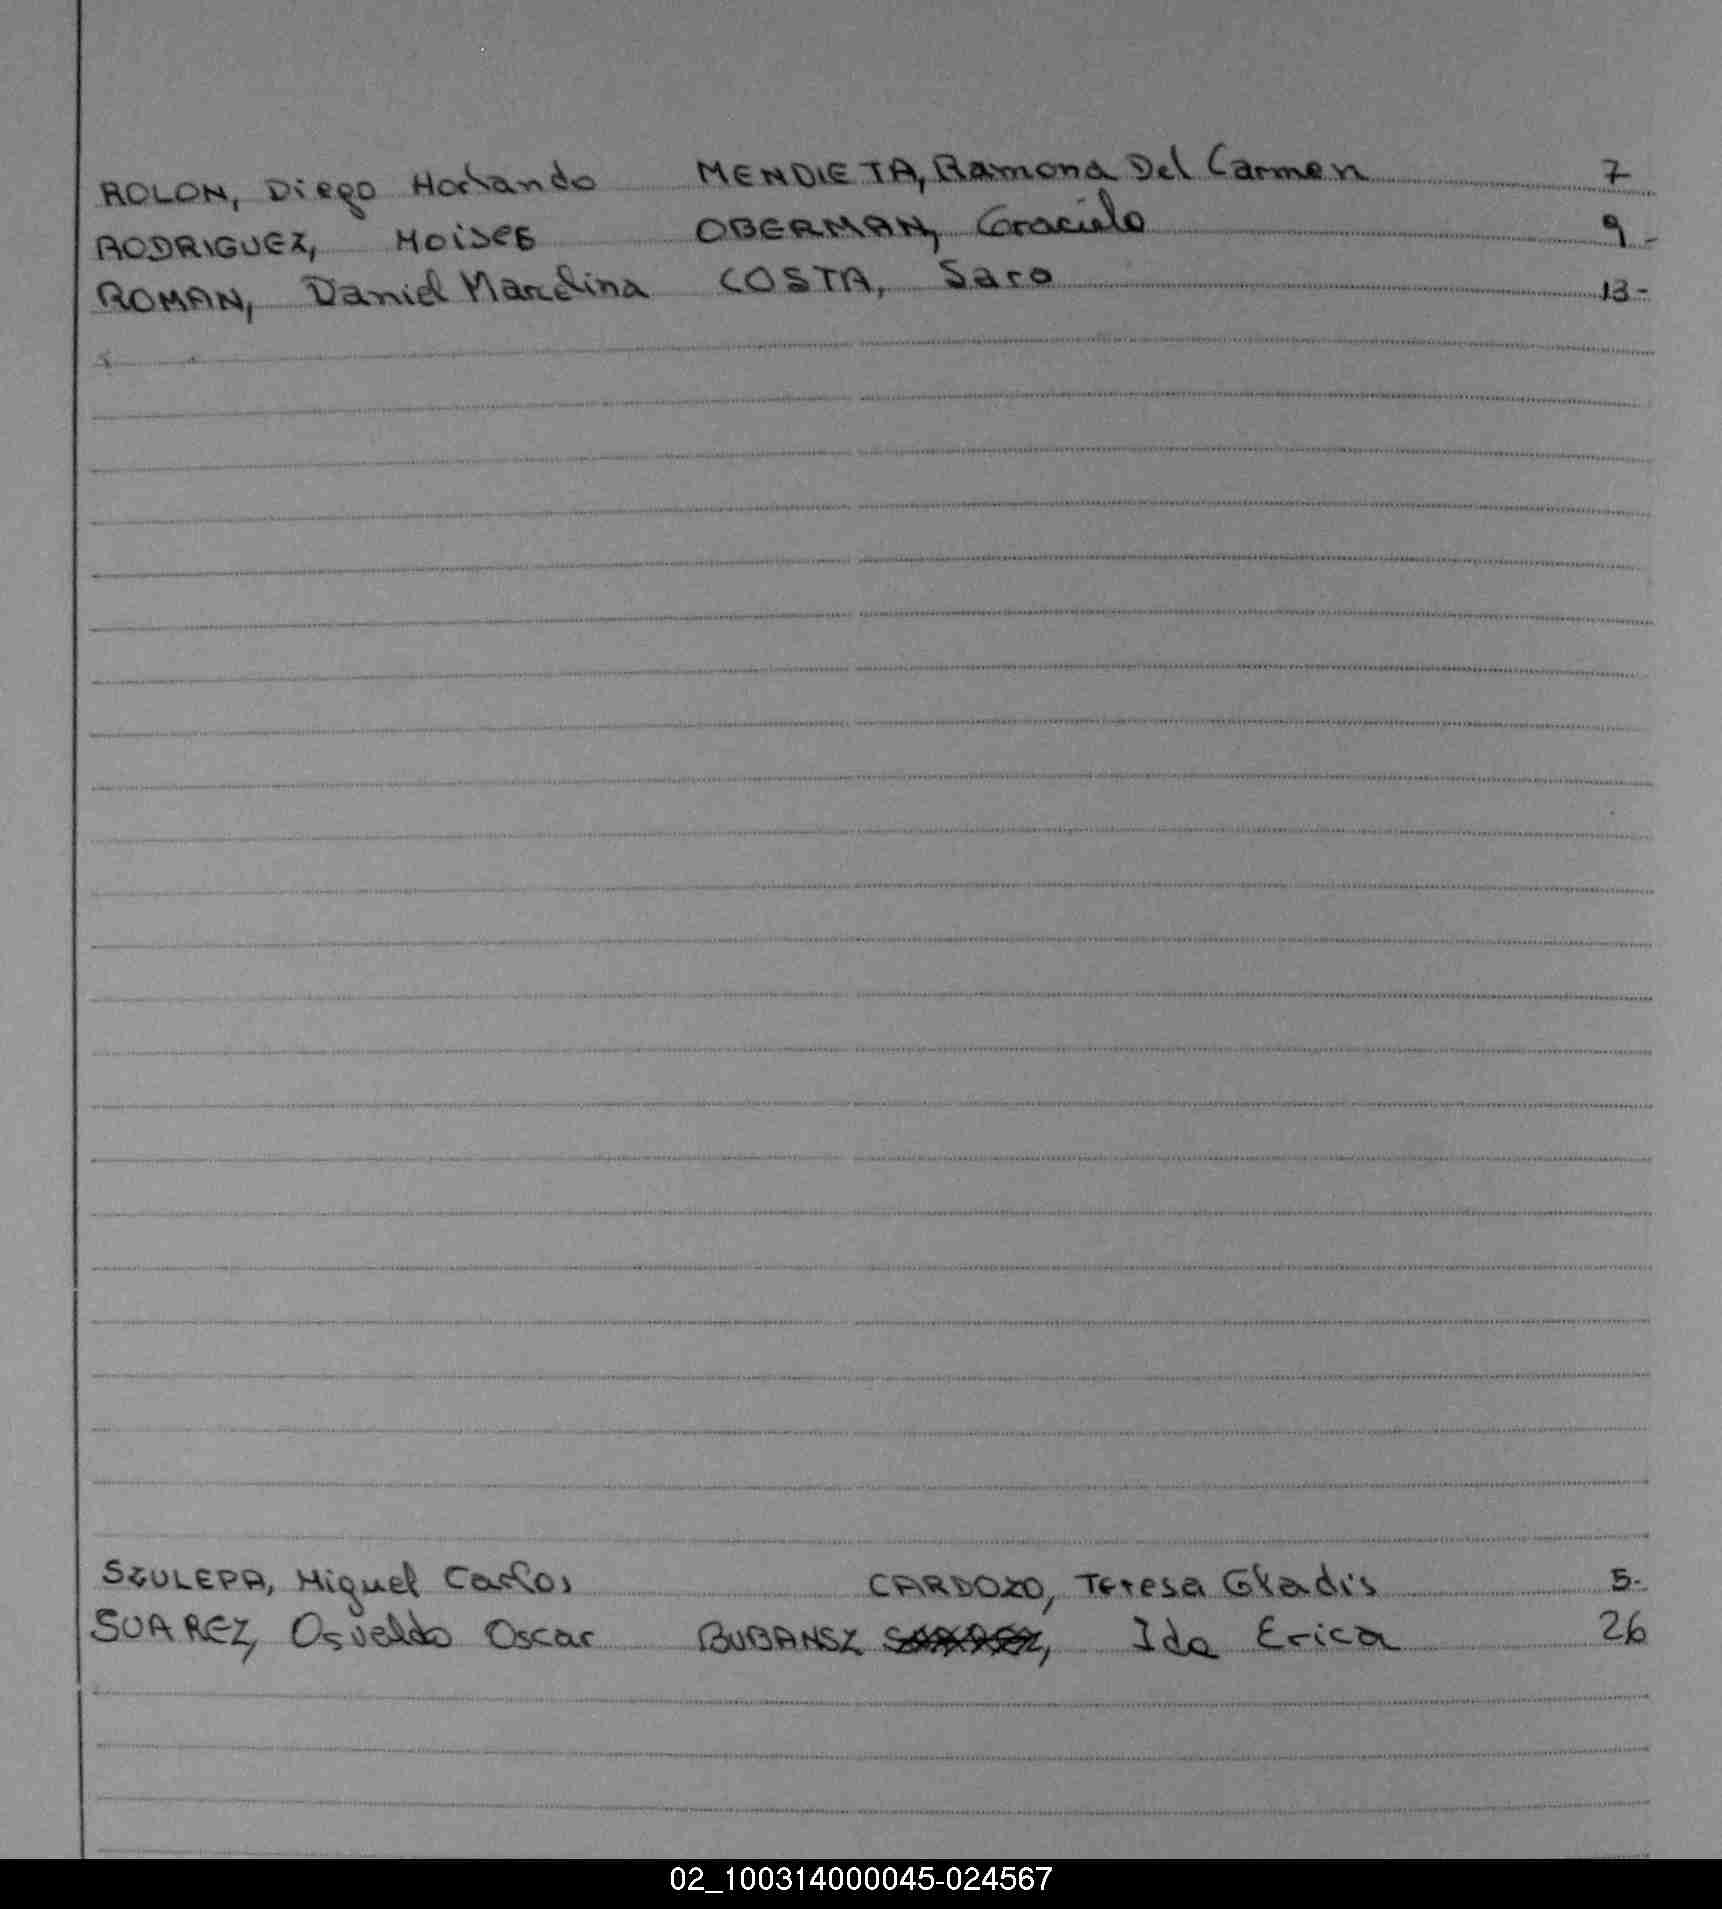 ROLON, Diego Horlando MENDIETA, Ramona Del Carmen 7
RODRIGUEZ, Moises OBERMAN, Graciela 9-
ROMAN, Daniel Marcelina COSTA, Sara 13-
SZULEPA, Miguel Carlos CARDOZO, Teresa Gladis 5-
SUAREZ, Osvaldo Oscar BUBANSZ, Ida Erica 26
02_100314000045-024567